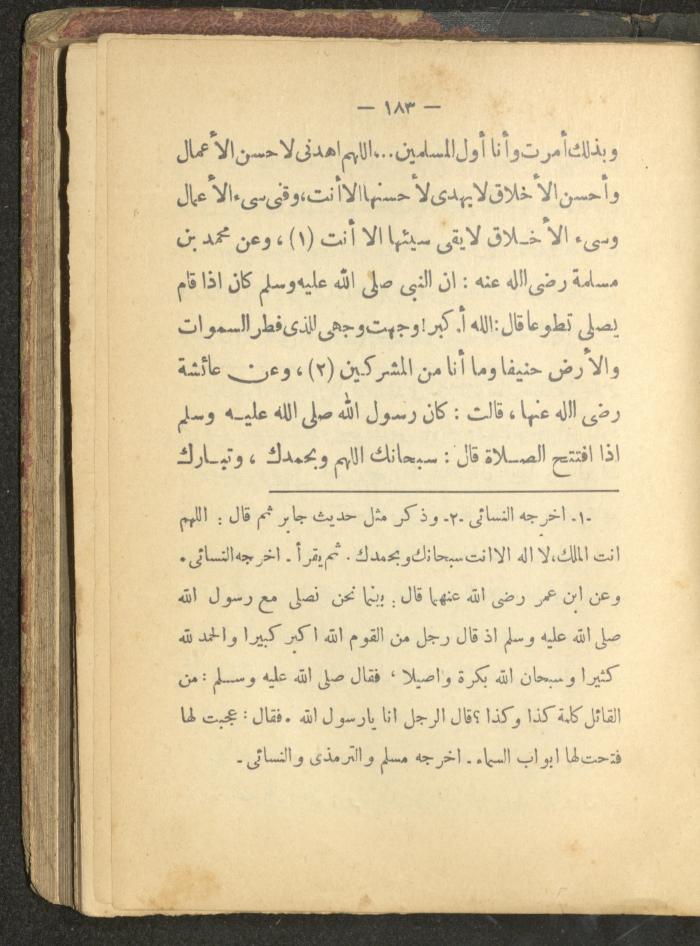 — ١٨٣ —
وبذلك أمرت وأنا أول المسلمين... اللهم اهدنى لاحسن الأعمال
وأحسن الأخلاق لايهدى لأحسنها الا أنت، وقنى سىء الأعمال
وسىء الأخـلاق لايقى سيئها الا أنت (١) ، وعن محمد بن
مسلمة رضى الله عنه : ان النبى صلى الله عليه وسلم كان اذا قام
يصلى تطوعا قال: الله أكبر! وجهت وجهى للذى فطر السموات
والأرض حنيفا وما أنا من المشركين (٢) ، وعن عائشة
رضى الله عنها ، قالت : كان رسول الله صلى الله عليـه وسلم
اذا افتتح الصـلاة قال : سبحانك اللهم وبحمدك ، وتبـارك
-١- اخرجه النسائى -٢- وذكر مثل حديث جابر ثم قال : اللهم
انت الملك، لا اله الا انت سبحانك وبحمدك . ثم يقرأ . اخرجه النسائى .
وعن ابن عمر رضى الله عنهما قال : بينما نحن نصلى مع رسول الله
صلى الله عليه وسلم اذ قال رجل من القوم الله اكبر كبيرا والحمد لله
كثيرا وسبحان الله بكرة واصيلا ، فقال صلى الله عليه وسـلم : من
القائل كلمة كذا وكذا ؟ قال الرجل انا يارسول الله . فقال : عجبت لها
فتحت لها ابواب السماء . اخرجه مسلم والترمذى والنسائى -